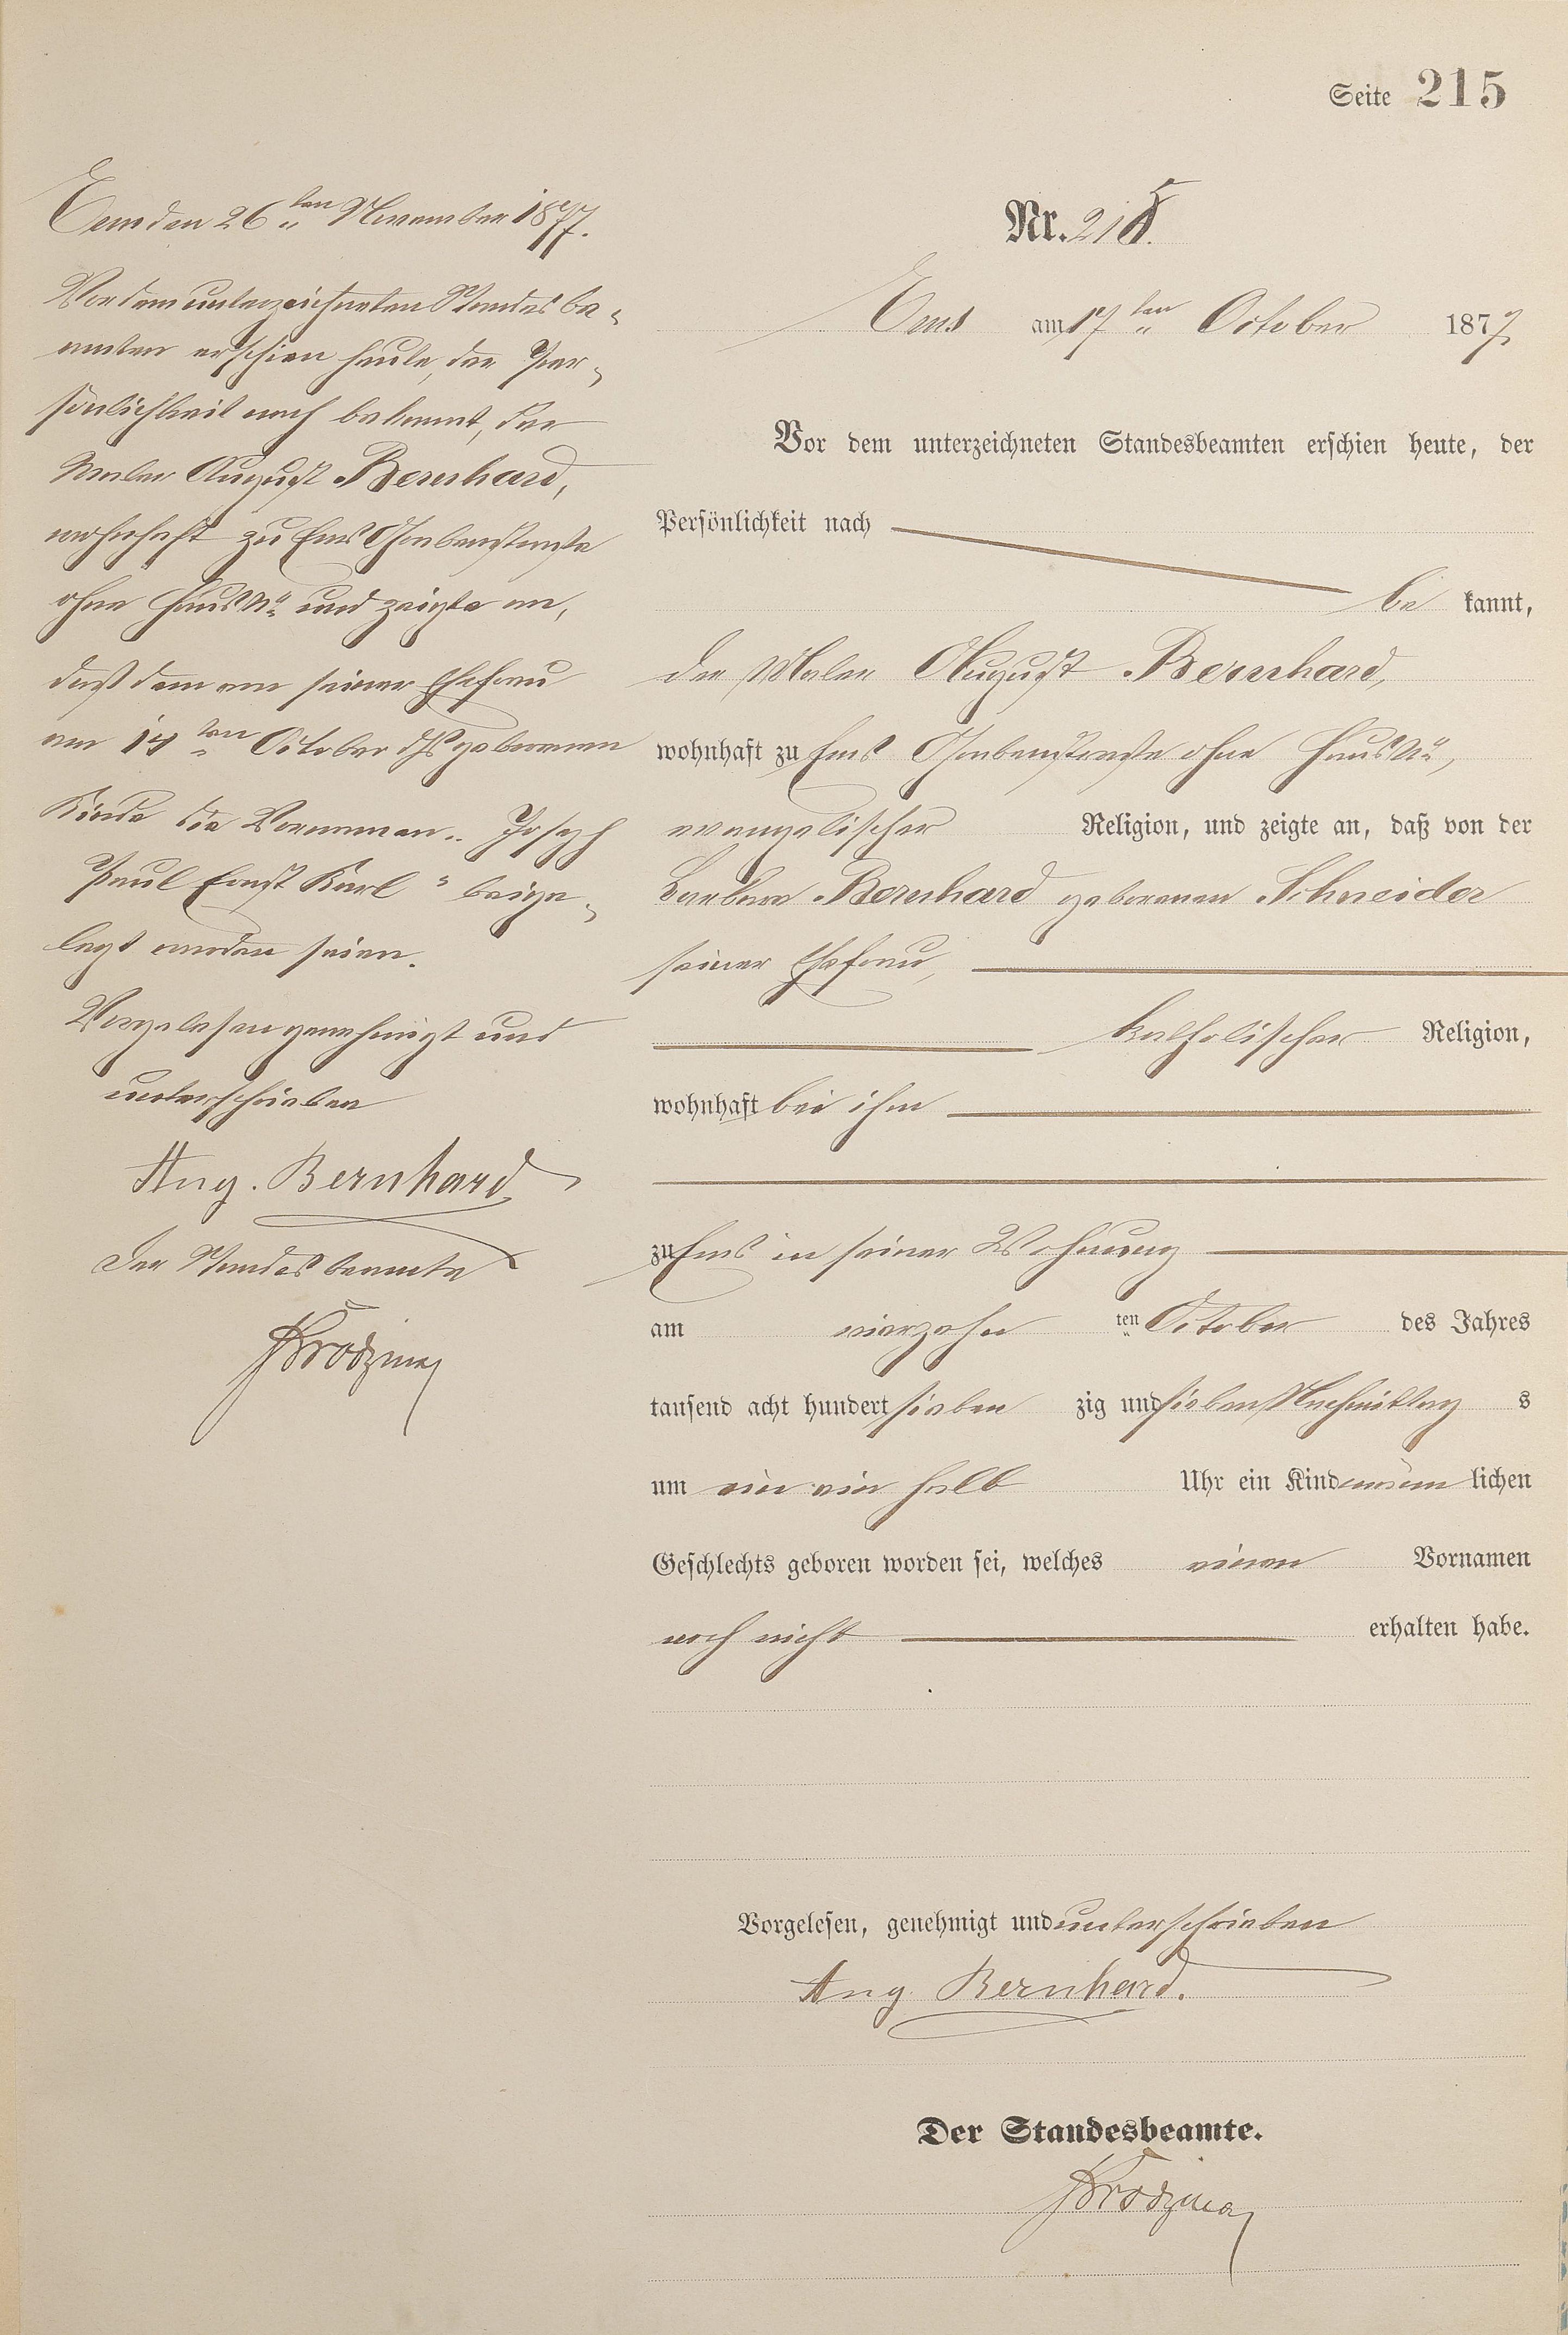 Seite 215
Ems den 26ten November 1877.
Vor dem unterzeichneten Standesbe-
amten erschien heute, der Per-
sönlichkeit nach bekannt, der
Maler August Bernhard,
wohnhaft zu Ems Grabenstraße
ohne Haus No und zeigte an,
daß dem von seiner Ehefrau
am 14ten October dJs geborenen
Kinde die Vornamen „Joseph
Paul Ernst Karl“ beige-
legt worden seien.
Vorgelesen genehmigt und
unterschrieben
Aug. Bernhard
Der Standesbeamte
Nr. 215.
Ems am 17ten October 1877.
Vor dem unterzeichneten Standesbeamten erschien heute, der
Persönlichkeit nach
be kannt,
der Maler August Bernhard,
wohnhaft zu Ems Grabenstraße ohne Haus No,
evangelischer Religion, und zeigte an, daß von der
Barbara Bernhard geborenen Schneider
seiner Ehefrau,
katholischer Religion,
wohnhaft bei ihm
zu Ems in seiner Wohnung
am vierzehn ten October des Jahres
tausend acht hundert sieben zig und sieben Nachmittag s
um ein ein halb Uhr ein Kind männ lichen
Geschlechts geboren worden sei, welches einen Vornamen
noch nicht erhalten habe.
Vorgelesen, genehmigt und unterschrieben
Aug. Bernhard.
Der Standesbeamte.